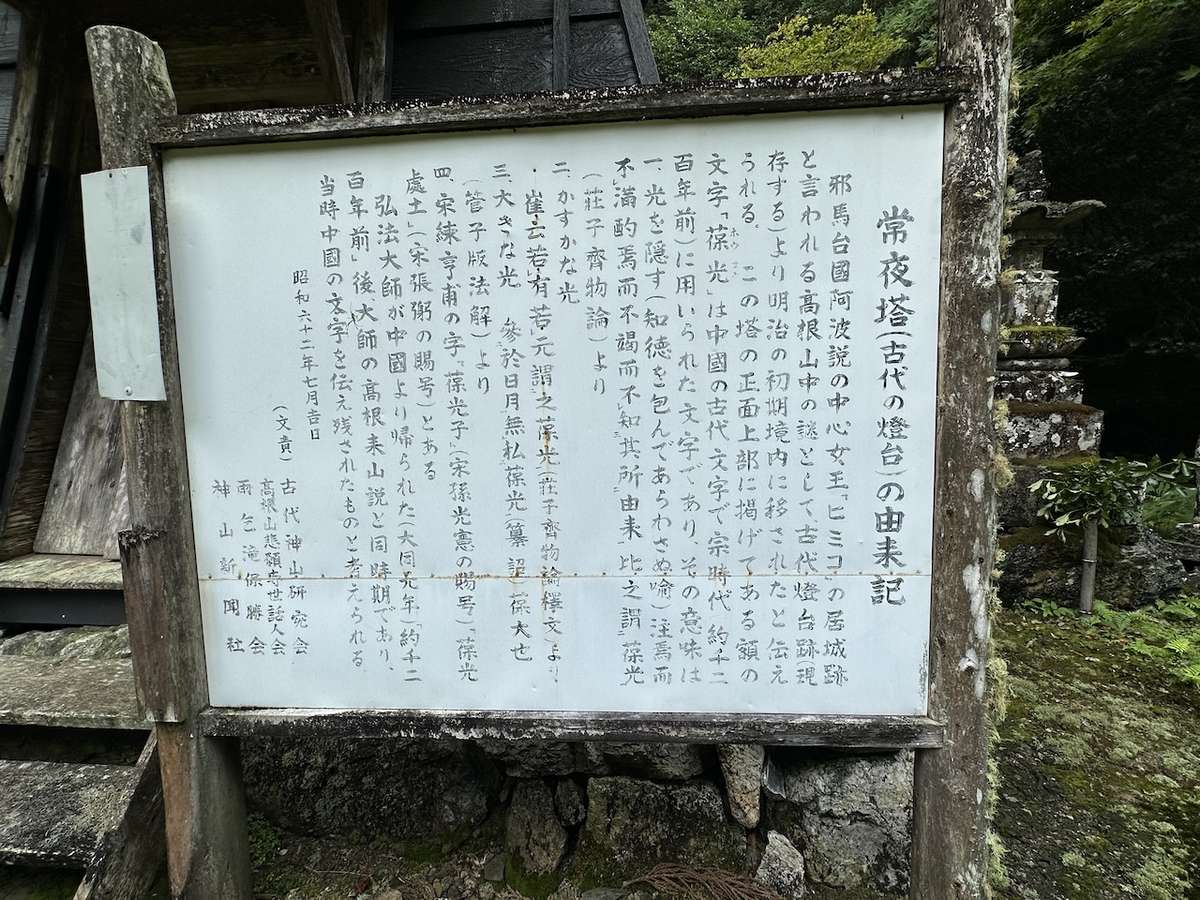 常夜塔(古代の燈台)の由来記
邪馬台國阿波説の中心女王「ヒミコ」の居城跡
と言われる高根山中の謎として、古代燈台跡(現
存する)より明治の初期境内に移されたと伝え
られる。この塔の正面上部に掲げてある額の
文字「葆光」は中國の古代文字で宗時代(約千二
百年前)に用いられた文字であり、その意味は
一、光を隠す(知徳を包んであらわさぬ喩)注焉而
不満酌焉而不竭而不知其所由来比之謂葆光
(荘子齊物論)より
二、かすかな光
崔云若有若无謂之葆光(荘子齊物論釋文)より
三、大きな光 參於日月無私葆光(纂詔)葆大也
(管子版法解)より
四、宋練亨甫の字。葆光子(宋孫光憲の賜号)、葆光
處士」(宋張弼の賜号)とある
弘法大師が中國より帰られた(大同元年)「約千二
百年前」後大師の高根来山説と同時期であり、
当時中國の文字を伝え残されたものと考えられる
昭和六十二年七月吉日
(文責) 古代神山研究会
高根山悲願寺世話人会
雨乞滝保勝会
神山新聞社